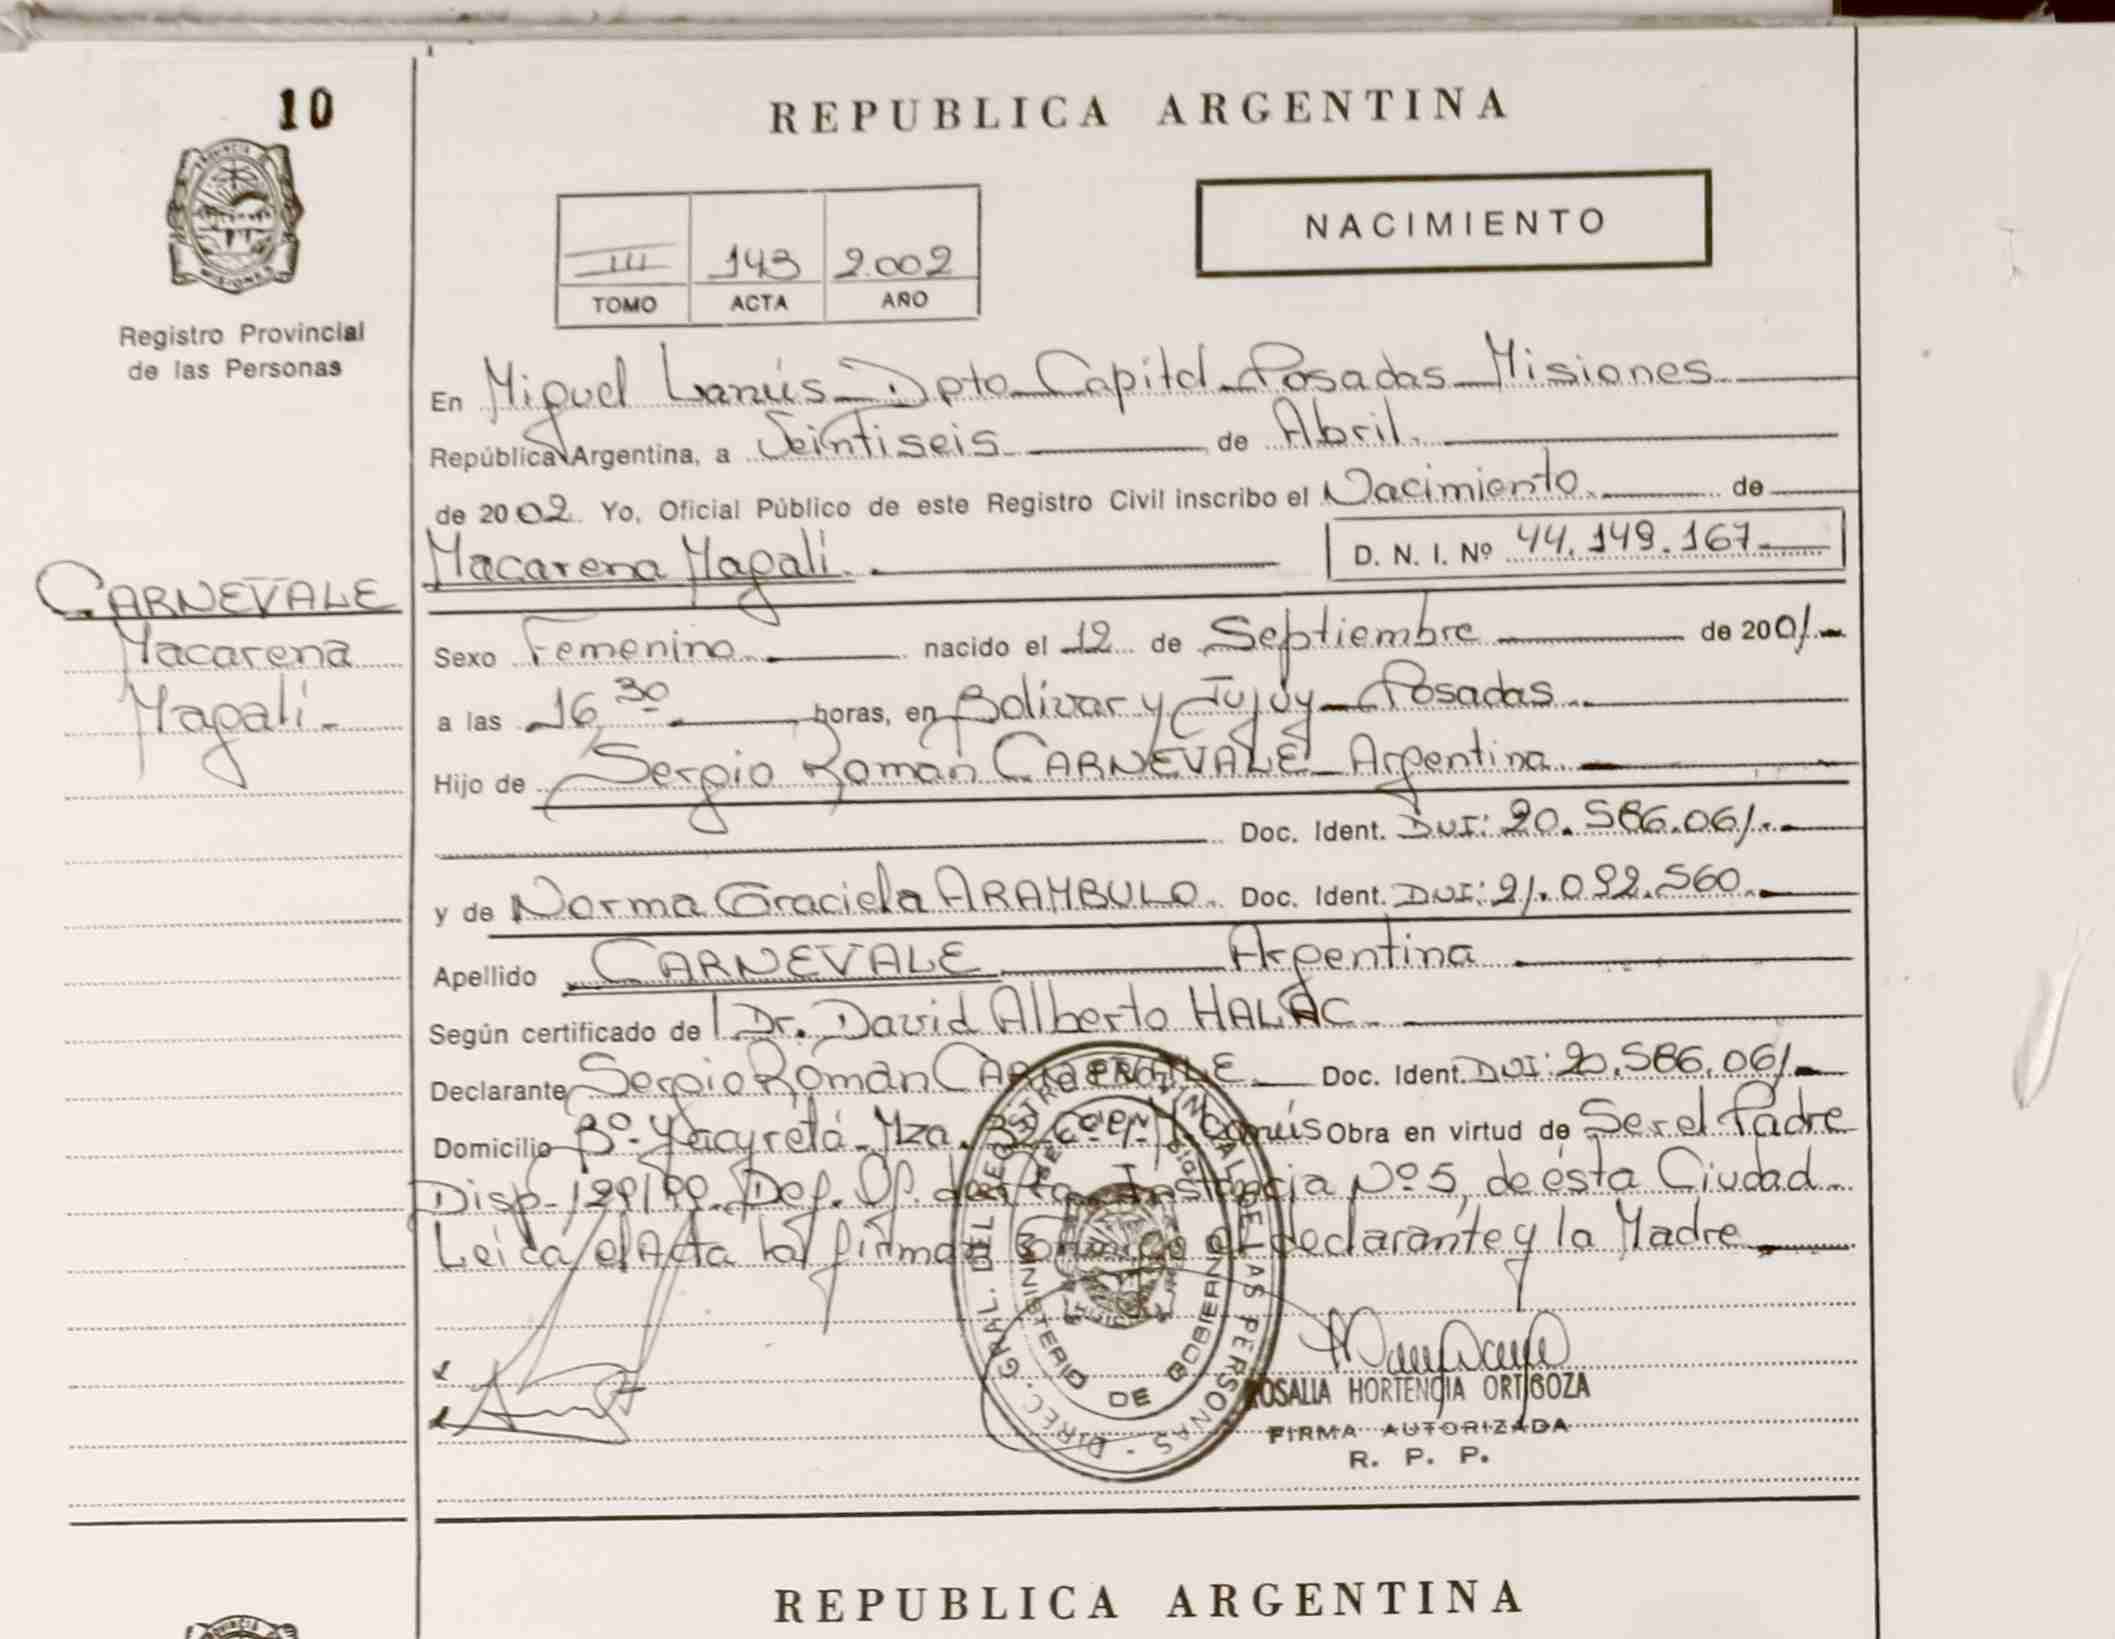 10
REPUBLICA ARGENTINA
NACIMIENTO
III 143 2.002
TOMO ACTA AÑO
Registro Provincial
de las Personas
En Miguel Lanús - Dpto Capital - Posadas - Misiones
República Argentina, a Veintiseis de Abril.
de 2002. Yo, Oficial Público de este Registro Civil inscribo el Nacimiento. de
Macarena Magali. D. N. I. Nº 44.149.167.-
CARNEVALE
Macarena
Magali.-
Sexo Femenino. nacido el 12 de Septiembre de 2001.-
a las 16,30 horas, en Bolivar y Jujuy - Posadas.
Hijo de Sergio Román CARNEVALE - Argentina.
Doc. Ident. DNI: 20.586.061.-
y de Norma Graciela ARAMBULO. Doc. Ident. DNI: 21.092.560.-
Apellido CARNEVALE Argentina
Según certificado de Dr. David Alberto HALAC
Declarante Sergio Román CARNEVALE Doc. Ident. DNI: 20.586.061.-
Domicilio Bº. Yacyretá - Mza. Lanús Obra en virtud de Ser el Padre
Disp. Def. Of. Instancia Nº 5, de ésta Ciudad.-
Leida el Acta la firman el declarante y la Madre
DIREC. GRAL. DEL REGISTRO PROVINCIAL DE LAS PERSONAS
MINISTERIO DE GOBIERNO
ROSALIA HORTENCIA ORTIGOZA
FIRMA AUTORIZADA
R. P. P.
REPUBLICA ARGENTINA